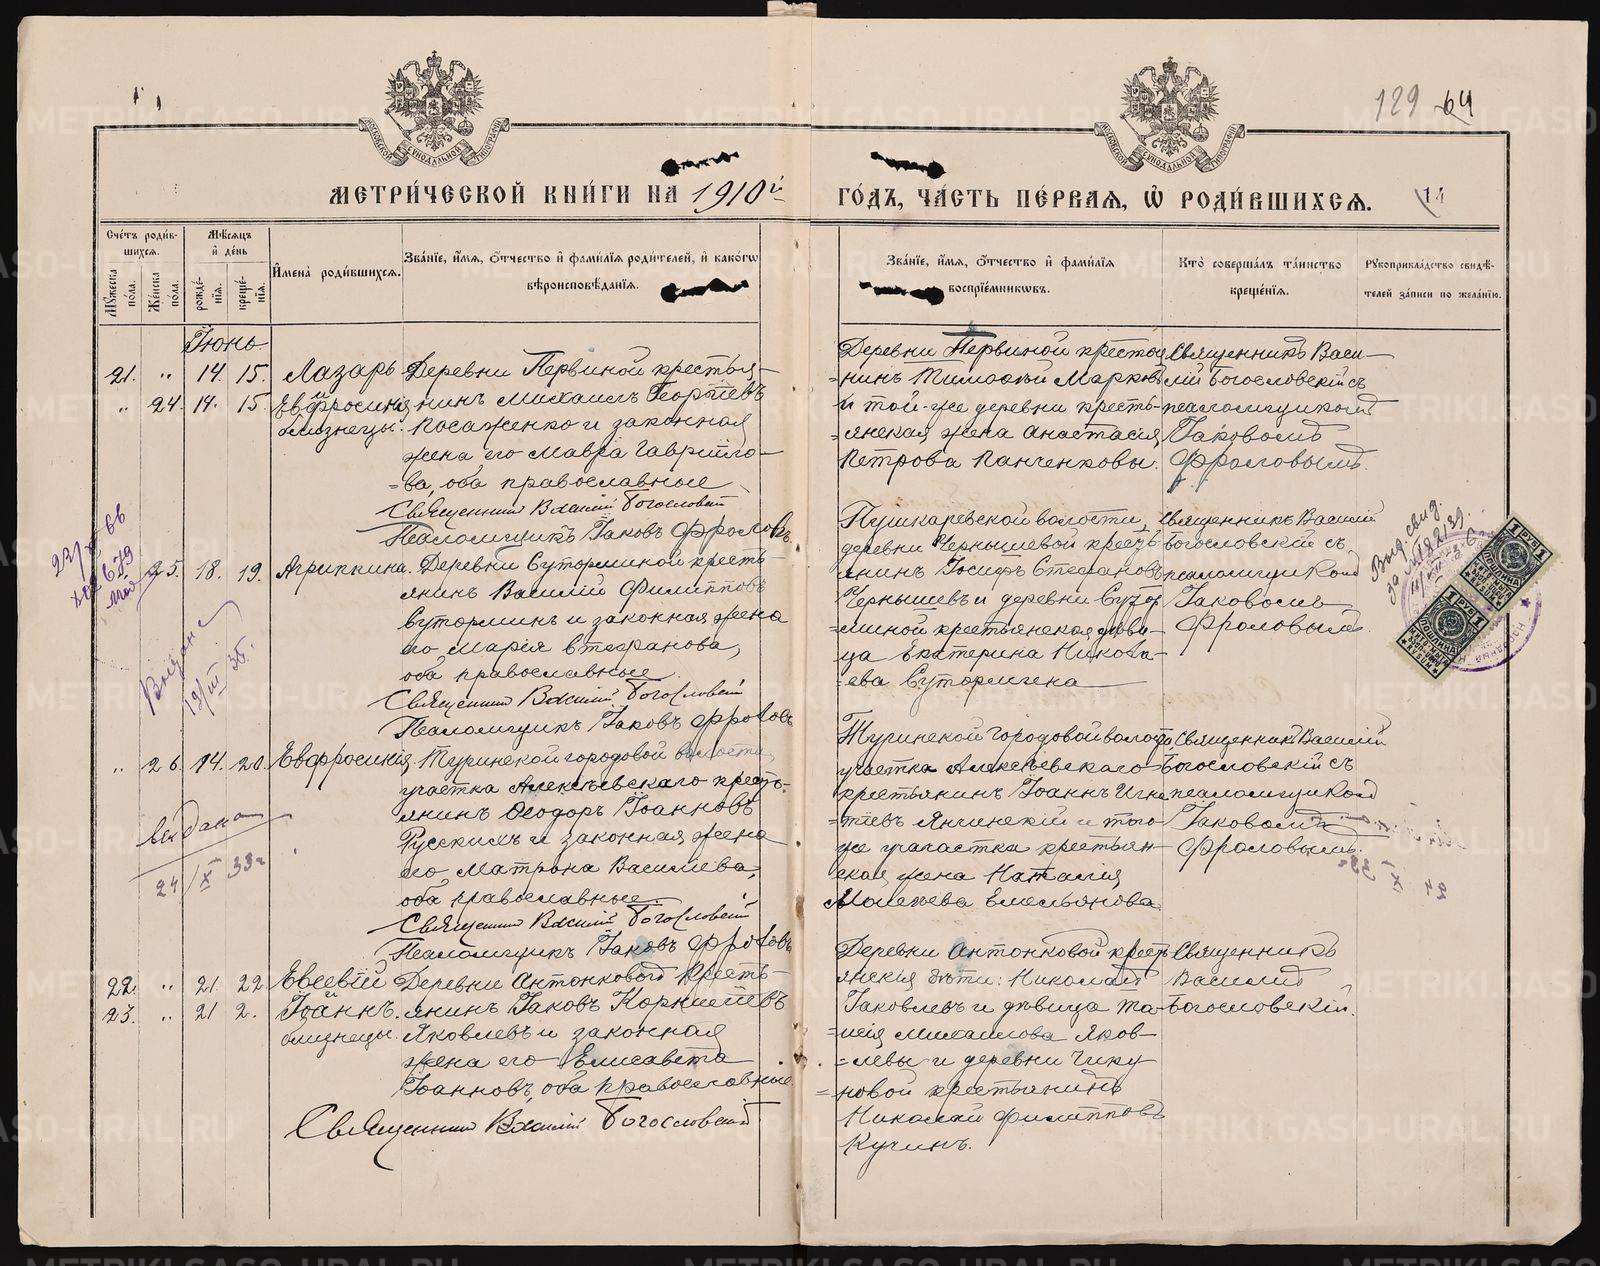 129 64
МЕТРИ́ЧЕСКОЙ КНИ́ГИ НА 1910й
ГО́ДЪ, ЧА́СТЬ ПЕ́РВАЯ, Ѿ РОДИ́ВШИХСЯ.
14
Сче́тъ роди́в-
шихся.
Мѣ́сяцъ
и҆ де́нь
Му́жеска по́ла.
Же́нска по́ла.
рожде́-нїя.
креще́-нїя.
И҆мена̀ роди́вшихся.
Зва́нїе, и҆́мя, ѻ҆́тчество и҆ фами́лїя роди́телей, и҆ како́гѡ
вѣроисповѣ́данїя.
Зва́нїе, и҆́мя, ѻ҆́тчество и҆ фами́лїя
воспрїе́мникѡвъ.
Кто̀ соверша́лъ та́инство
креще́нїя.
Рꙋкоприкла́дство свидѣ́-
телей за́писи по жела́нїю.
Іюнь.
21. " 14. 15. Лазарь
" 24. 14. 15. Евфросинія
близнецы.
Деревни Первиной крестья-
нинъ Михаилъ Георгіевъ
Посаженко и законная
жена его Мавра Гаврило-
=ва, оба православные
Священникъ Василій Богословскій
Псаломщикъ Іаковъ Фроловъ
Деревни Первиной крестья
=нинъ Тимофей Марковъ
и той-же деревни кресть-
=янская жена Анастасія
Петрова Панченковы.
Священникъ Васи-
лій Богословскій съ
псаломщикомъ
Іаковомъ
Фроловымъ.
25. 18. 19. Агриппина.
Деревни Суторминой кресть-
янинъ Василій Филипповъ
Суторминъ и законная жена
его Марія Стефанова,
оба православные.
Священникъ Василій Богословскій
Псаломщикъ Іаковъ Фроловъ
Пушкаревской волости,
деревни Чернышевой кресть
янинъ Іосифъ Стефановъ
Чернышевъ и деревни Сутор
=миной крестьянская дѣви-
ца Екатерина Никола-
=ева Сутормина
Священникъ Василій
Богословскій съ
псаломщикомъ
Іаковомъ
Фроловымъ.
Выд. свид.
1 РУБ 1
ПОШЛИНА
1 РУБ 1
ПОШЛИНА
Выдано
19/III 35.
" 26. 14. 20. Евфросинія
Туринской городовой волости
участка Алексѣевскаго кресть-
янинъ Ѳеодоръ Іоанновъ
Русскихъ и законная жена
его Матрона Васильева,
оба православные.
Священникъ Василій Богословскій
Псаломщикъ Іаковъ Фроловъ
Туринской городовой волости
участка Алексѣевскаго
крестьянинъ Іоаннъ Игна
=тіевъ Янчинскій и того
же участка крестьян-
ская жена Наталія
Моисеева Емельянова
Священникъ Василій
Богословскій съ
псаломщикомъ
Іаковомъ
Фроловымъ.
выдана
24/X 33г.
22. " 21. 22 Евсевій
23. " 21 2. Іоаннъ.
близнецы.
Деревни Антонковой кресть-
янинъ Іаковъ Корниліевъ
Яковлевъ и законная
жена его Елисавета
Іоаннова, оба православные
Священникъ Василій Богословскій
Деревни Антонковой кресть
янскія дѣти: Николай
Іаковлевъ и дѣвица Та-
=исія Михаилова Яков-
=левы и деревни Чику
=новой крестьянинъ
Николай Филипповъ
Кучинъ.
Священникъ
Василій
Богословскій.